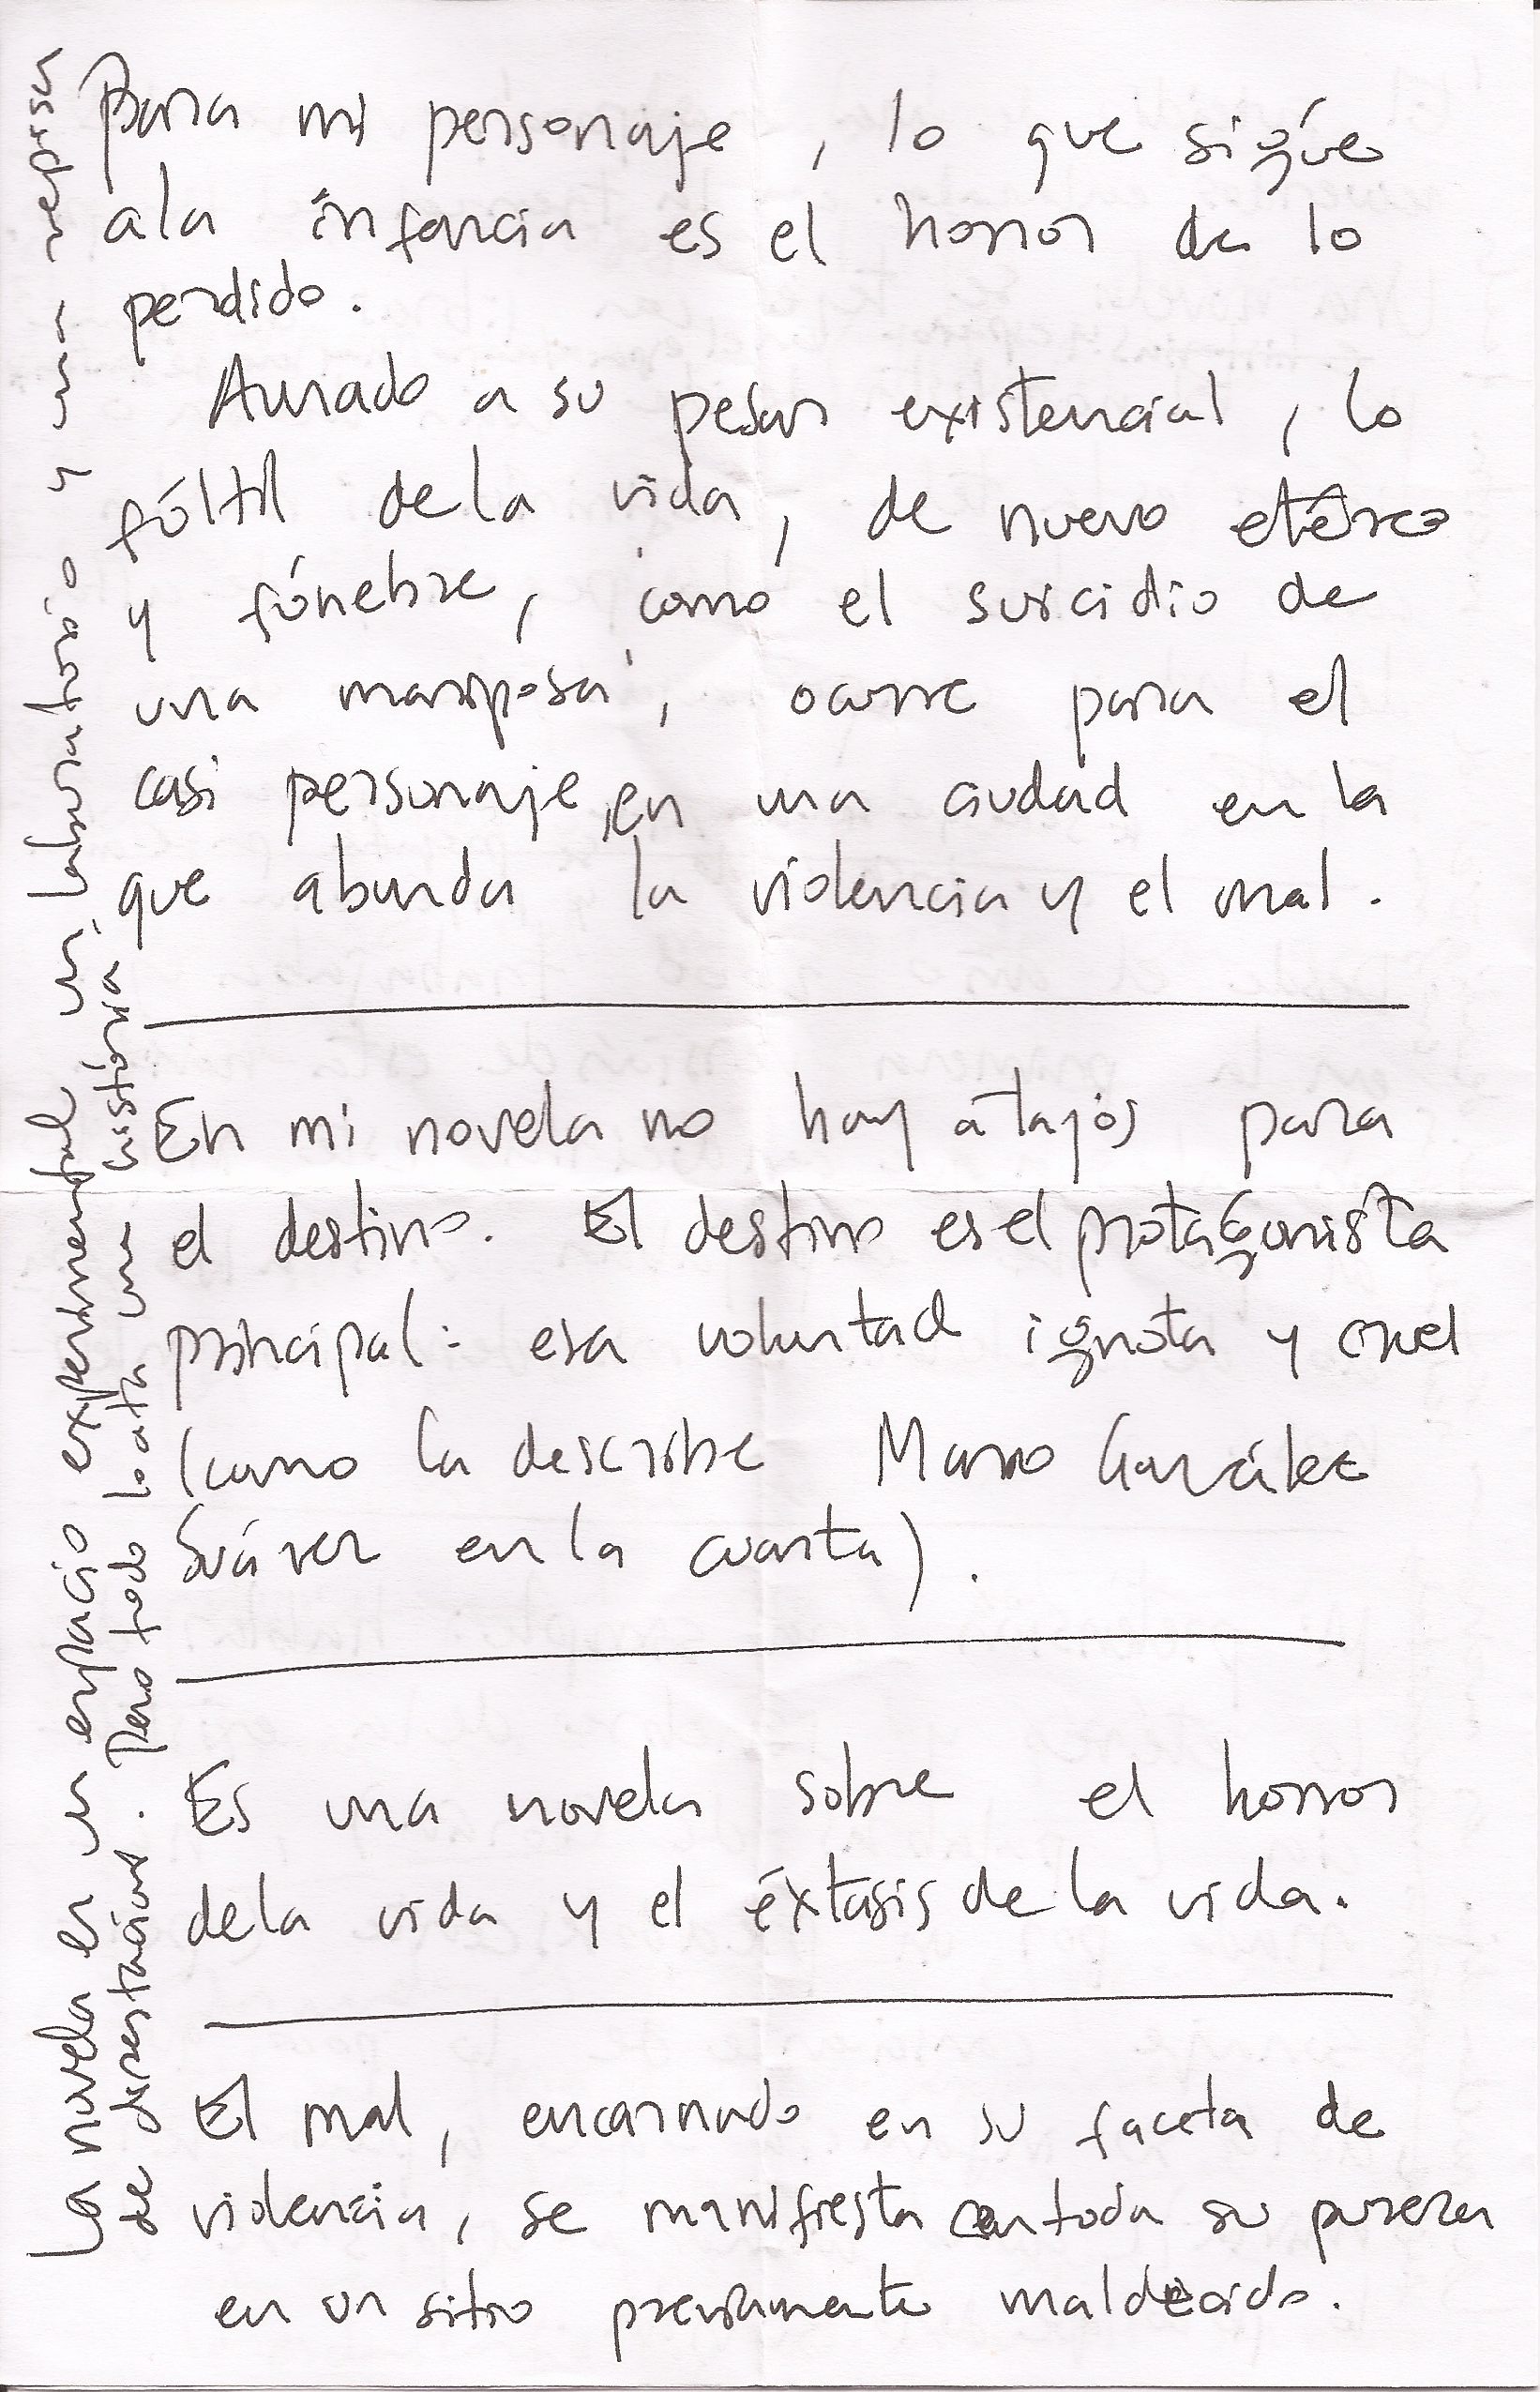 Para mi personaje, lo que sigue
a la infancia es el horror de lo
perdido.
Aunado a su pesar existencial, lo
fútil de la vida, de nuevo etéreo
y fúnebre, como el suicidio de
una mariposa, ocurre para el
casi personaje, en una ciudad en la
que abunda la violencia y el mal.
En mi novela no hay atajos para
el destino. El destino es el protagonista
principal: esa voluntad ignota y cruel
(como la describe Mario González
Suárez en la cuarta).
Es una novela sobre el horror
de la vida y el éxtasis de la vida.
El mal, encarnado en su faceta de
violencia, se manifiesta con toda su pureza
en un sitio previamente maldecido.
La novela es un espacio experimental, un laboratorio y una repisa
de disertaciones. Pero todo lo ata una historia